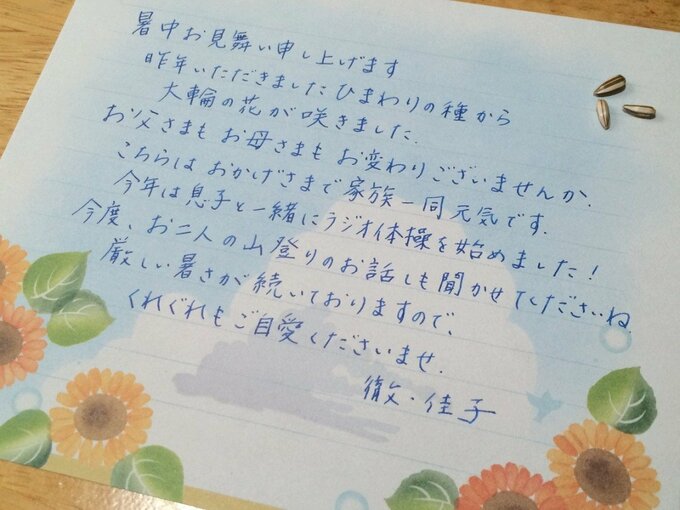 暑中お見舞い申し上げます
昨年いただきましたひまわりの種から
大輪の花が咲きました.
お父さまもお母さまもお変わりございませんか.
こちらはおかげさまで家族一同元気です.
今年は息子と一緒にラジオ体操を始めました!
今度、お二人の山登りのお話しも聞かせてくださいね.
厳しい暑さが続いておりますので、
くれぐれもご自愛くださいませ.
徹・佳子